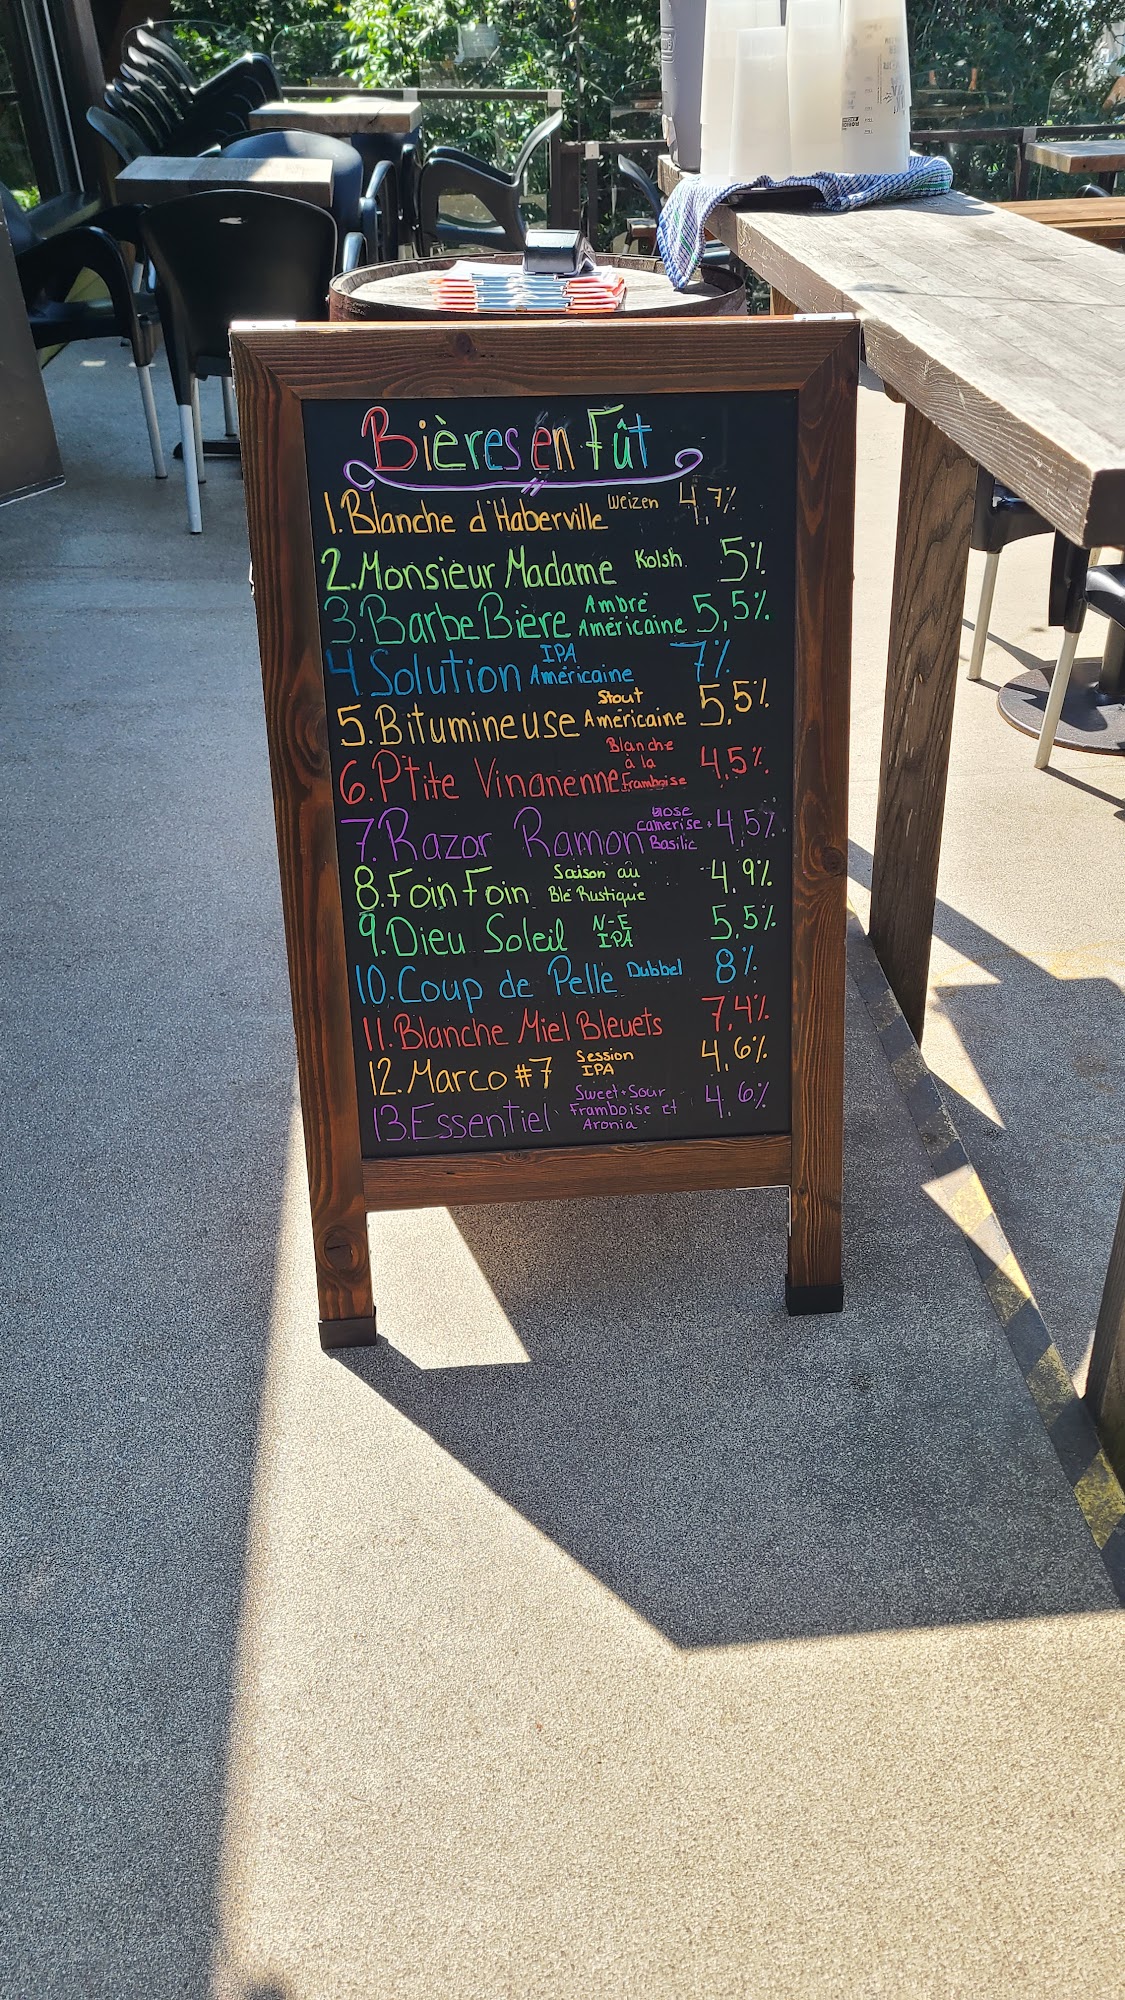 Bières en Fût
1. Blanche d'Haberville Weizen 4,7%
2. Monsieur Madame Kolsh 5%
3. Barbe Bière Ambré Américaine 5,5%
4. Solution IPA Américaine 7%
5. Bitumineuse Stout Américaine 5,5%
6. P'tite Vinanenne Blanche à la Framboise 4,5%
7. Razor Ramon Gose camerise + Basilic 4,5%
8. Foin Foin Saison au Blé Rustique 4,9%
9. Dieu Soleil N-E IPA 5,5%
10. Coup de Pelle Dubbel 8%
11. Blanche Miel Bleuets 7,4%
12. Marco #7 Session IPA 4,6%
13. Essentiel Sweet + Sour Framboise et Aronia 4,6%